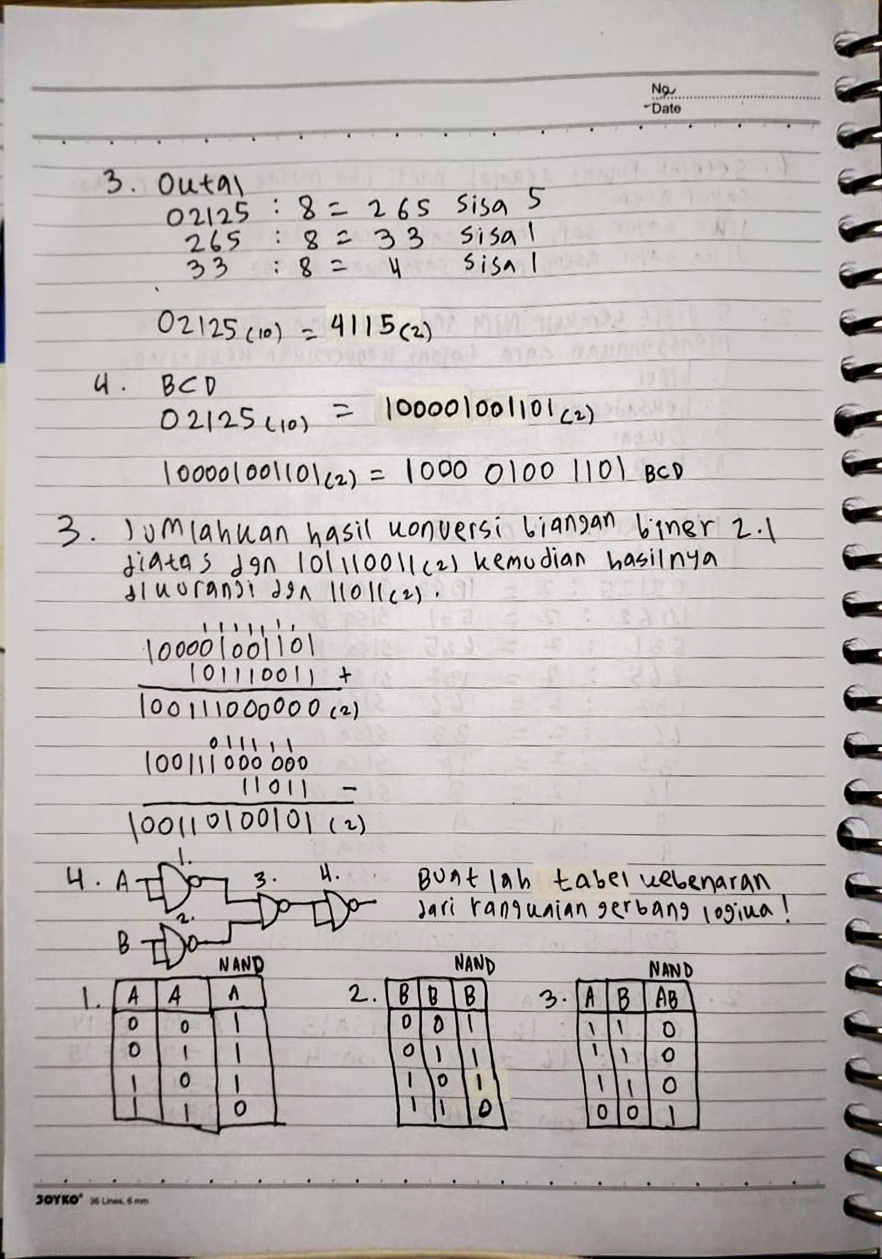 No.
Date
3. Outal
02125 : 8 = 265 sisa 5
265 : 8 = 33 sisa 1
33 : 8 = 4 sisa 1
02125 (10) = 4115 (2)
4. BCD
02125 (10) = 100001001101 (2)
100001001101 (2) = 1000 0100 1101 BCD
3. Jumlahkan hasil konversi biangan biner 2.1
diatas dgn 101110011 (2) kemudian hasilnya
dikurangi dgn 11011 (2).
1 1 1 1 1 1 1
100001001101
101110011 +
100111000000 (2)
0 1 1 1 1 1
100111000 000
11011 -
100110100101 (2)
4. A 1. 3. 4. Buatlah tabel kebenaran
B 2. dari rangkaian gerbang logika!
NAND NAND NAND
1. A A A 2. B B B 3. A B AB
0 0 1 0 0 1 1 1 0
0 1 1 0 1 1 1 1 0
1 0 1 1 0 1 1 1 0
1 1 0 1 1 0 0 0 1
JOYKO 36 Lines, 6 mm